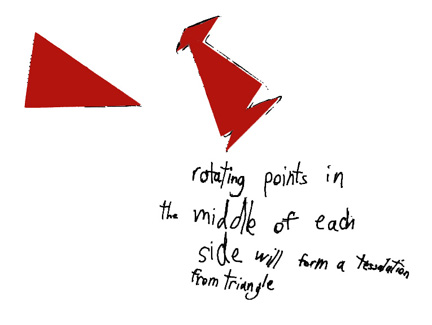 rotating points in
the middle of each
side will form a tessalation
from triangle